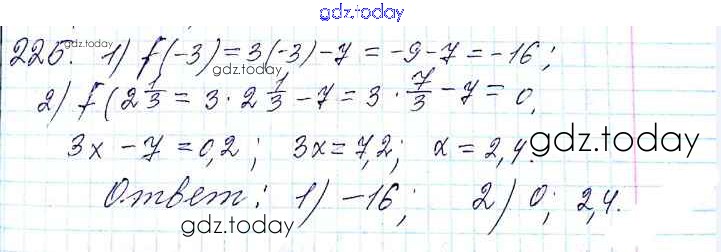 gdz.today
225. 1) f(-3) = 3(-3) - 7 = -9 - 7 = -16;
gdz.today
gdz.today
2) f(2 1/3 = 3 · 2 1/3 - 7 = 3 · 7/3 - 7 = 0,
3x - 7 = 0,2; 3x = 7,2; x = 2,4.
gdz.today
Ответ: 1) -16; 2) 0; 2,4.
gdz.today